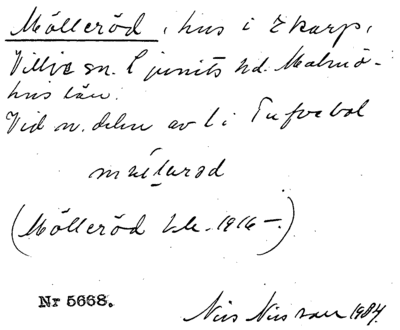 Mölleröd, hus i Ekarp,
Villie sn. Ljunits hd. Malmö-
hus län.
Vid n. delen av l i Tufvebol
(Mölleröd tlr. 1916 –.)
Nr 5668.
Nils Nilsson 1984.